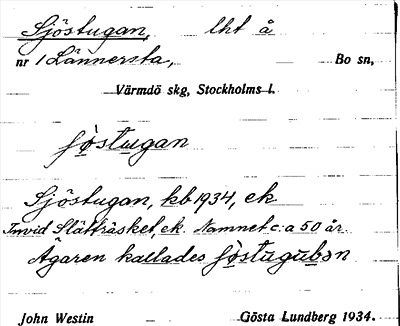 Sjöstugan, lht å
nr 1 Lännersta, Bo sn,
Värmdö skg, Stockholms l.
ʃö̀stugan
Sjöstugan, kb 1934, ek
Invid Slätträsket, ek. Namnet c:a 50 år
Ägaren kallades ʃö̀stugubən
John Westin Gösta Lundberg 1934.